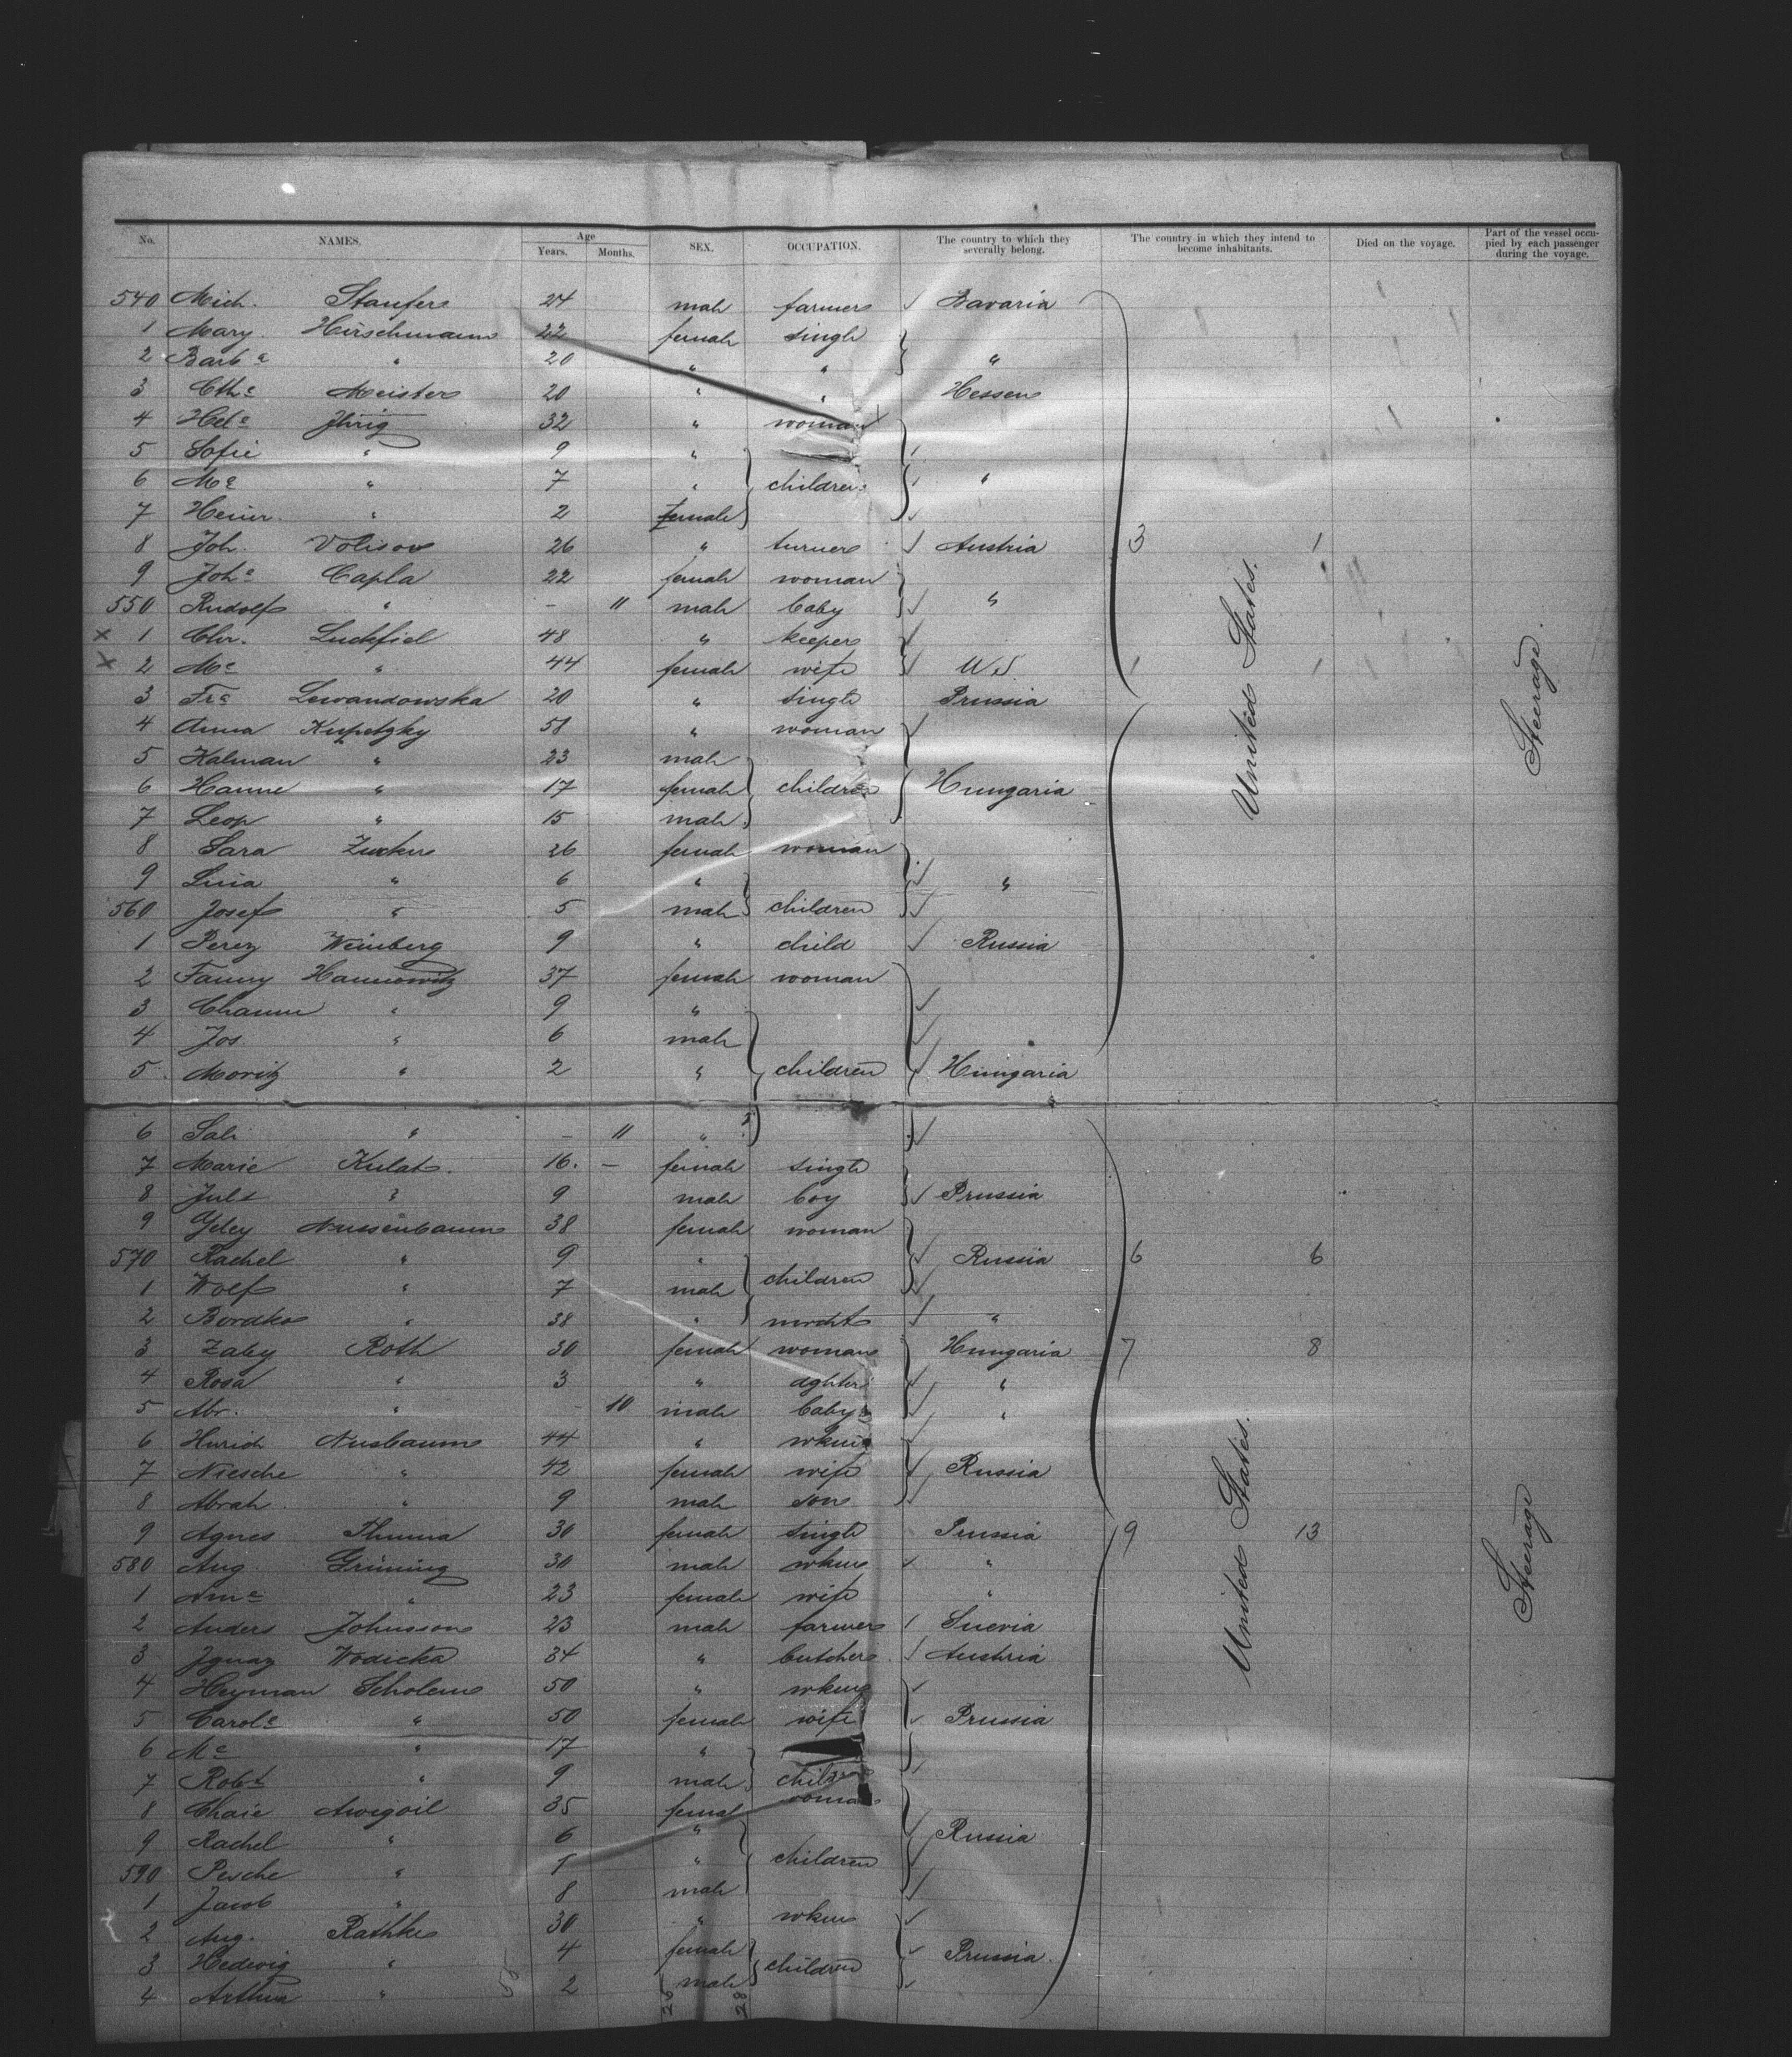 No. NAMES. Age Years. Months. SEX. OCCUPATION. The country to which they severally belong. The country in which they intend to become inhabitants. Died on the voyage. Part of the vessel occupied by each passenger during the voyage.
540 Mich. Staufer 24 male farmer Bavaria
1 Mary Hirschmann 22 female single
2 Barba " 20 " " "
3 Cthe Meister 20 " " Hessen
4 Hele Ihrig 32 " woman
5 Sofie " 9 "
6 Me " 7 " children "
7 Heinr. " 2 female
8 Joh. Volisov 26 " turner Austria 3 1
9 Joha Capla 22 female woman
550 Rudolf " - 11 male baby "
x 1 Chr. Luckfiel 48 " keeper
x 2 Me " 44 female wife U.S. 1 1
3 Fra Lewandowska 20 " single Prussia
4 Anna Kupetzky 58 " woman
5 Kalman " 23 male
6 Hanne " 17 female children Hungaria
7 Leop " 15 male
8 Sara Zucker 26 female woman
9 Lina " 6 " "
560 Josef " 5 male children
1 Perez Weinberg 9 " child Russia
2 Fanny Hamowitz 37 female woman
3 Channe " 9 "
4 Jos. " 6 male
5 Moritz " 2 " children Hungaria
United States.
Steerage.
6 Sali " - 11 "
7 Marie Kulat 16. - female single
8 Juls " 9 male boy Prussia
9 Nussenbaum 38 female woman
570 Rachel " 9 " Russia 6 6
1 Wolf " 7 male children
2 Bordko " 38 " mercht "
3 Zaley Roth 30 female woman Hungaria 7 8
4 Rosa " 3 " dghter "
5 Abr. " - 10 male baby "
6 Nusbaum 44 " wkm
7 Niesche " 42 female wife Russia
8 Abrah. " 9 male son
9 Agnes Thumma 30 female single Prussia 9 13
580 Aug. Grüning 30 male wkm "
1 " 23 female wife "
2 Anders Johnsson 23 male farmer Suevia
3 Ignaz Wodicka 34 " butcher Austria
4 Heyman Scholem 50 " wkm
5 Carole " 50 female wife Prussia
6 Me " 17 "
7 Robt " 9 male children
8 Chaie Awigoil 35 female woman
9 Rachel " 6 " Russia
590 Pesche " " children
1 Jacob " 8 male
2 Aug. Rathke 30 " wkm
3 Hedwig " 4 female children Prussia.
4 Arthur " 2 male
United States.
Steerage